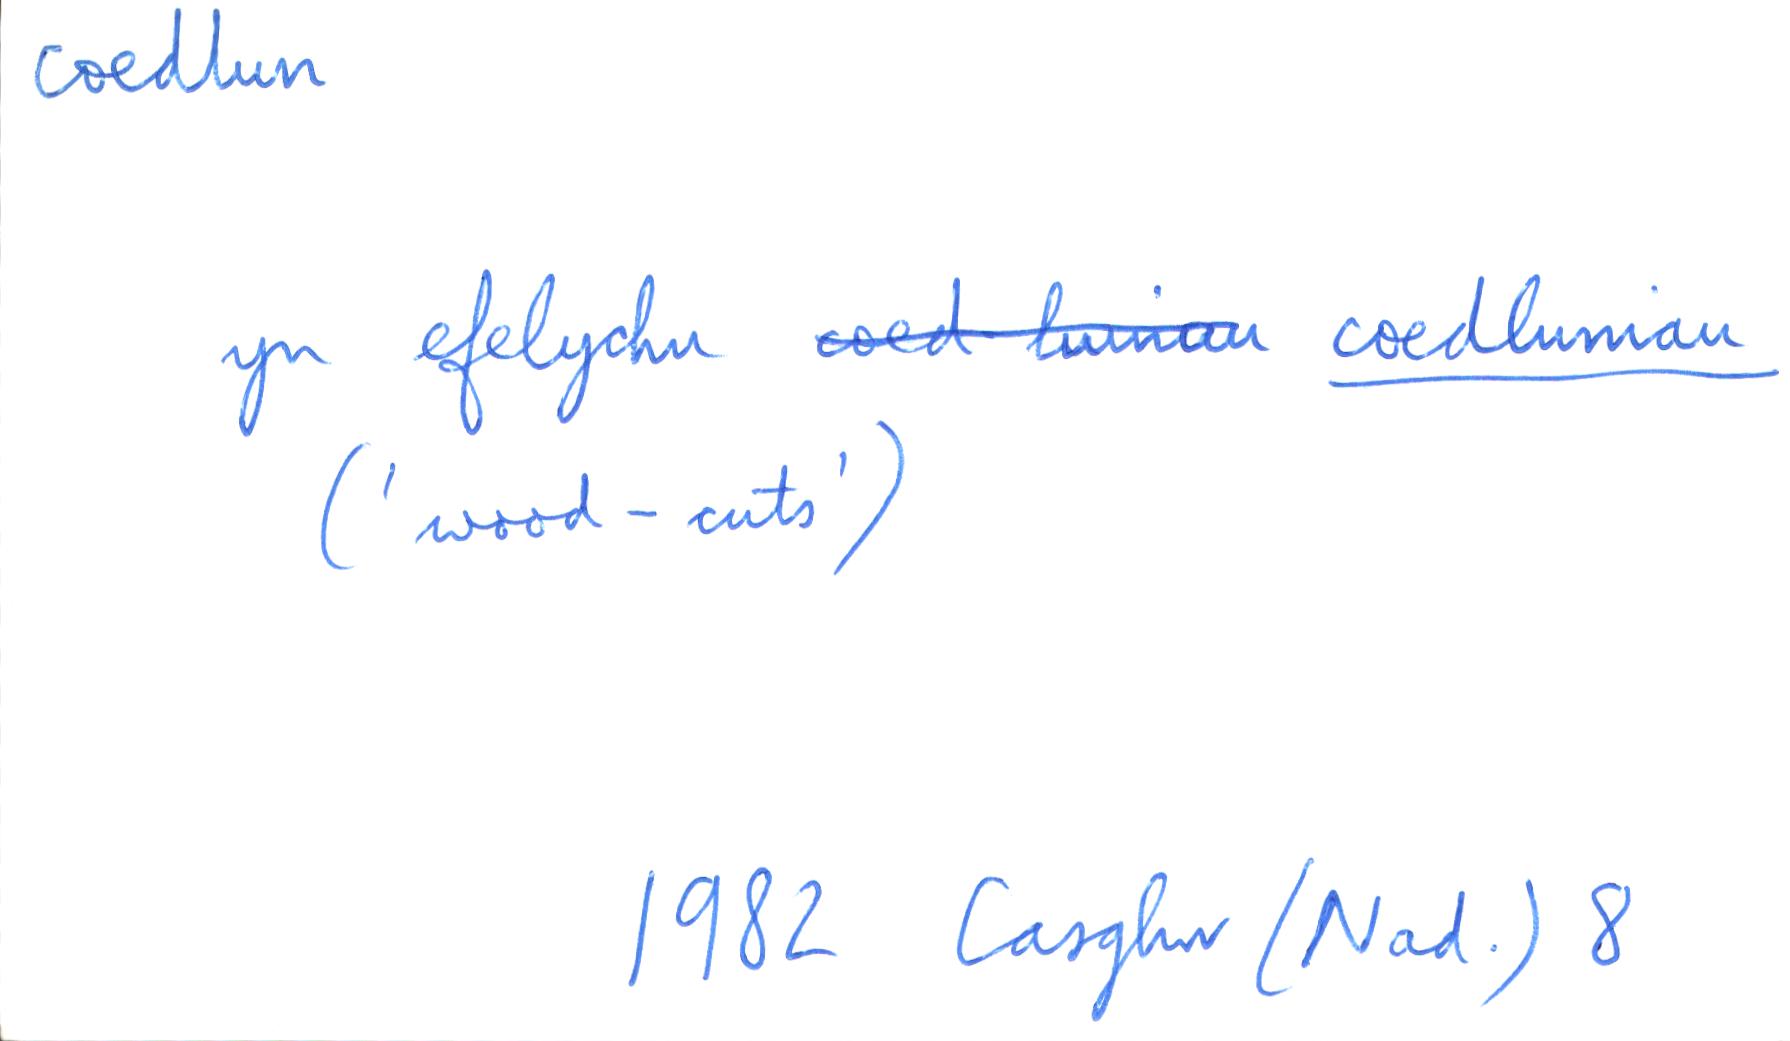 coedlun
yn efelychu coed luniau coedluniau
('wood-cuts')
1982 Casglwr (Nad.) 8